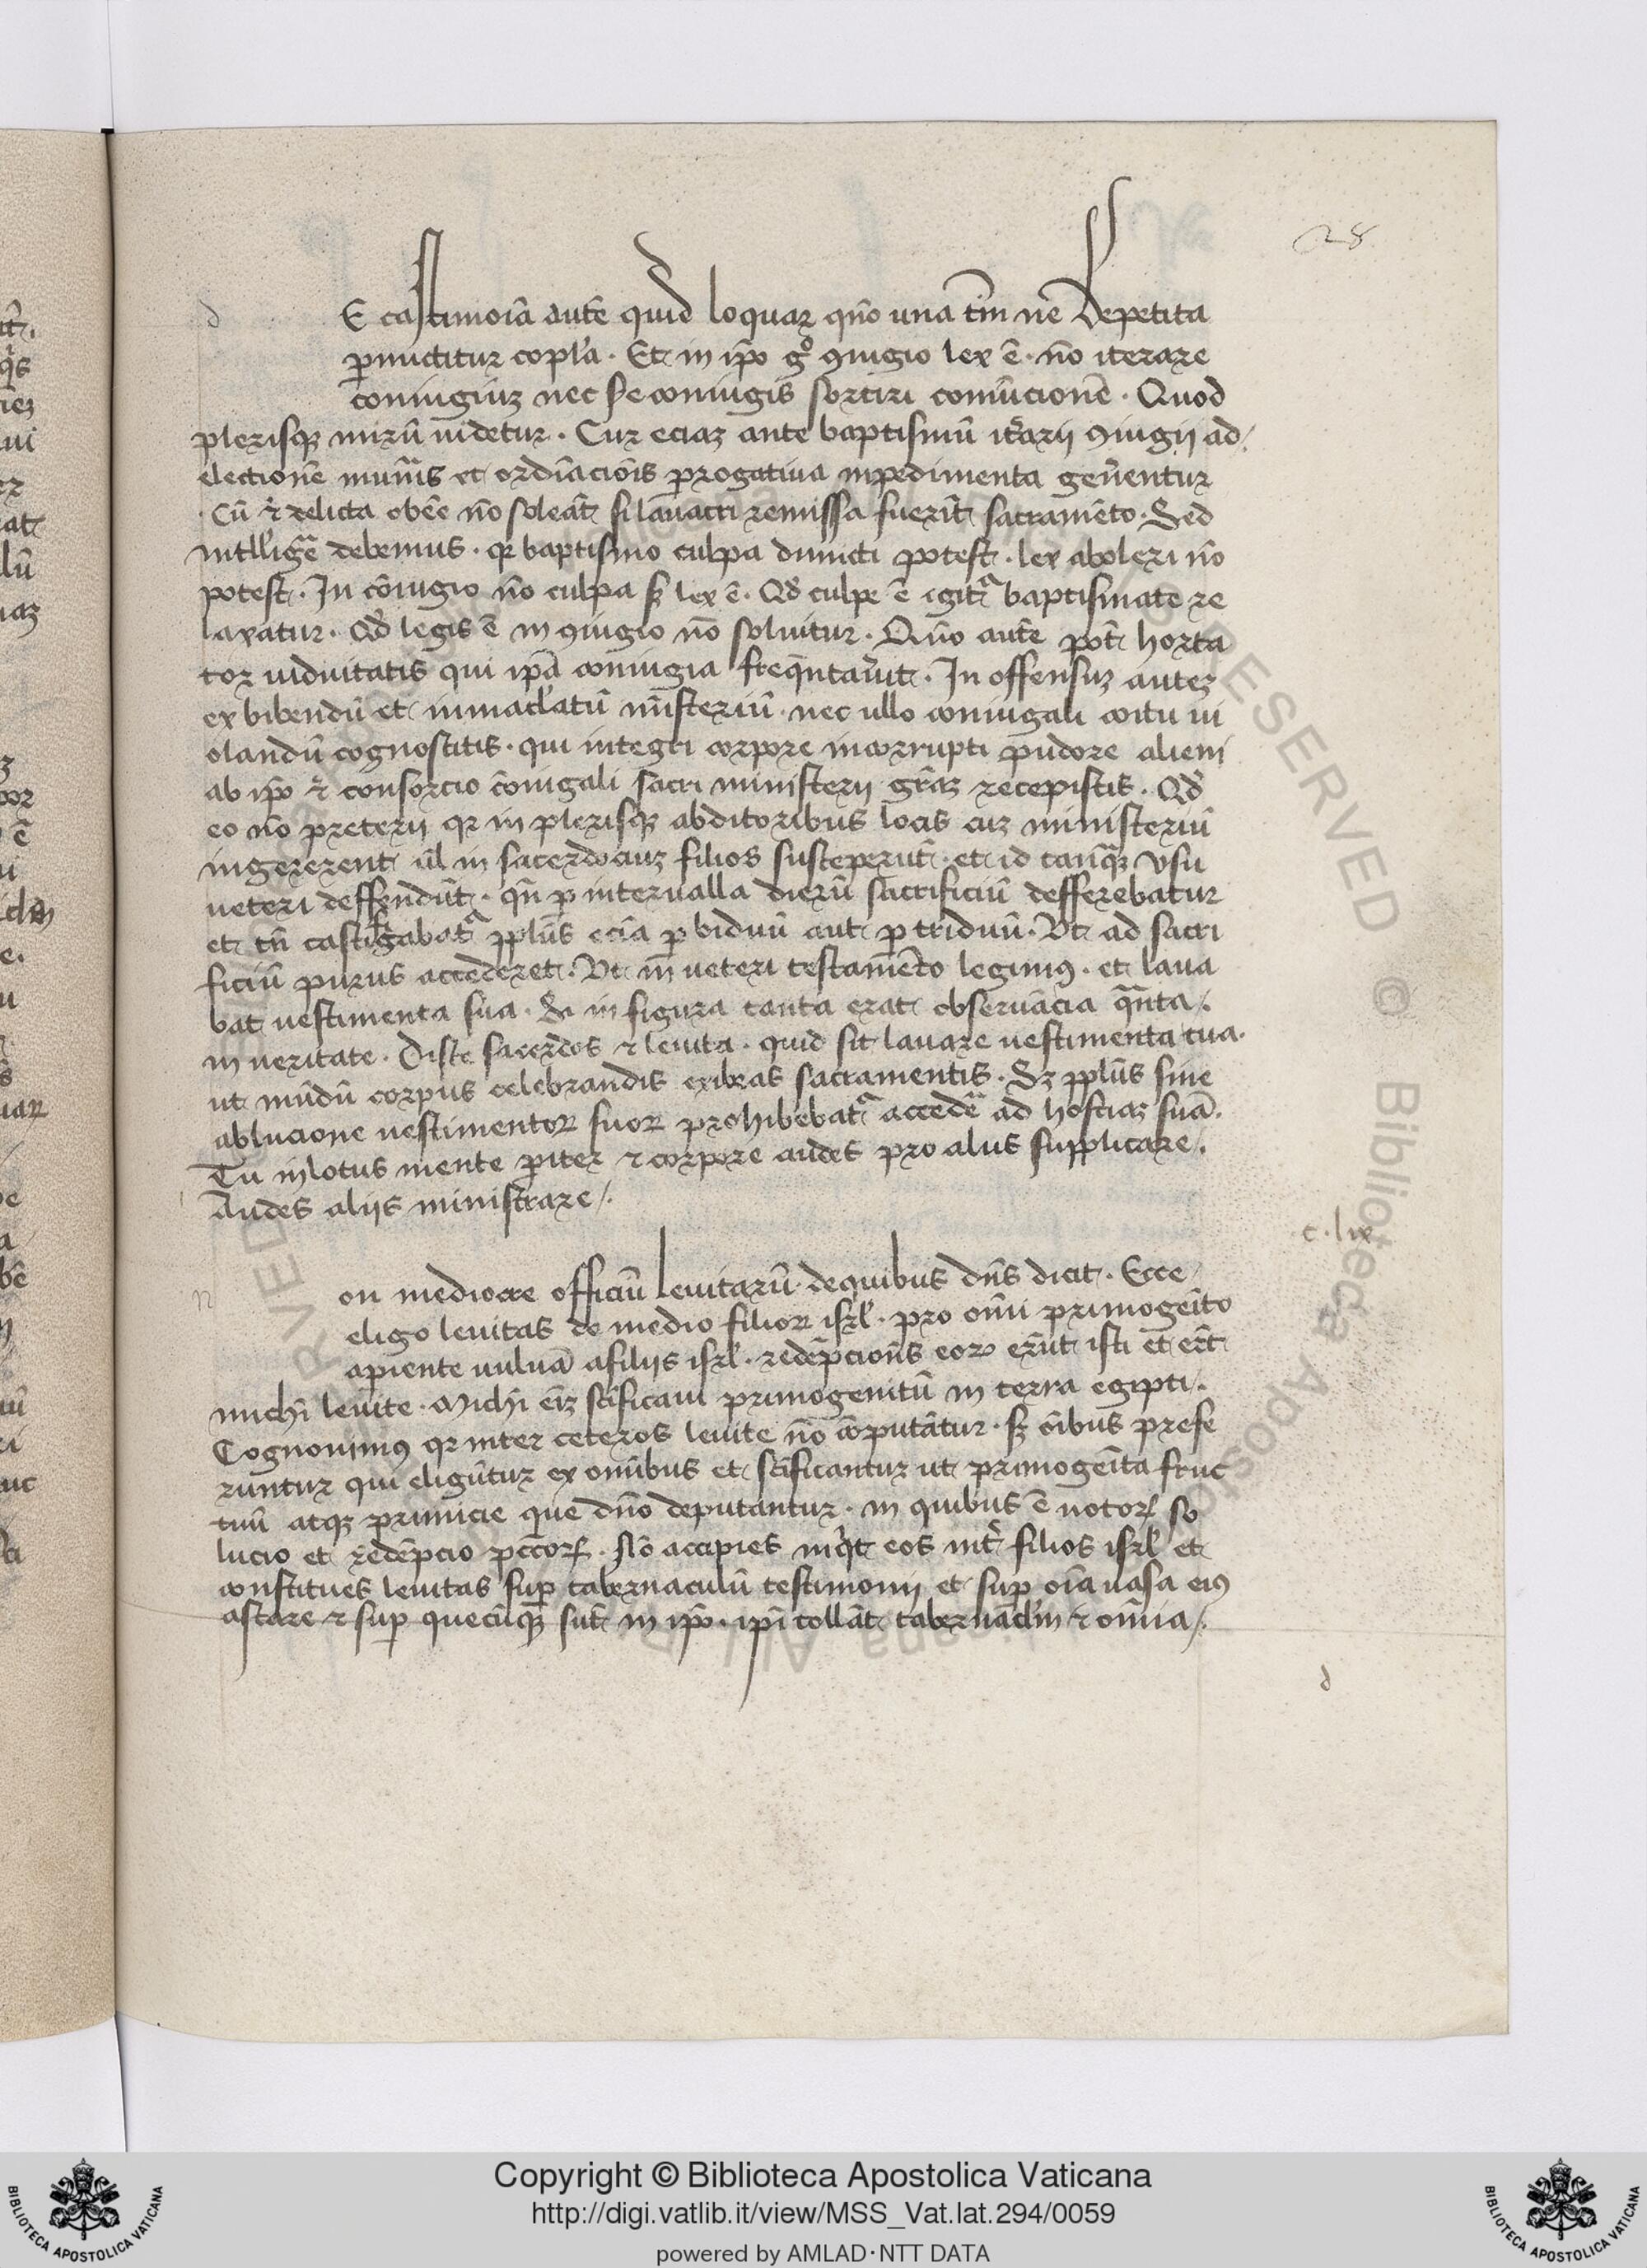 28
d
E castimoia aute quid loquar qño una tm ne depetita
pmittitur copla . Et in ipo go 9iugio lex ē . nō iterare
coniugiuz nec se coniugis sortiri coniūcionē . Quod
plerisqz mirū uidetur . Cur eciaz ante baptismū itarii 9iugij ad/
electionē muneris et ordiacois progatiua inpedimenta genentur
. Cū & relicta obēē nō soleāt si lauacri remissa fuerīt sacramēto . Sed
intllige debemus . qr baptismo culpa dimicti potest . lex aboleri nō
potest . In cōiugio nō culpa sz lex ē . Qd culpe ē igitr baptismate re
laxatur . Qd legis ē in 9iugio nō soluitur . Quō autē pot horta
tor uiduitatis qui ipa coniugia freqntauit . In offensuz autez
exbibendū et inmaclatū misteriū nec ullo coniugali coitu ui
olandū cognoscitis . qui integri corpore incorrupti pudore alieni
ab ipo & consorcio coniugali sacri ministerij graz recepistis . Qd
eo nō preterij qr in plerisqz abditoribus locis cuz ministeriū
ingererent ul in sacerdociuz filios susceperūt . et id tanqz vsu
ueteri deffendūt . qn p interualla dierū sacrificiū defferebatur
et tn castigabatr pplus ecia p biduū aut p triduū . Vt ad sacri
ficiū purus accederet . Vt in ueteri testamēto legimus . et laua
bat uestimenta sua . Si in figura tanta erat obseruācia qnta /.
in ueritate . Disce sacerdos & leuita . quid sit lauare uestimenta tua .
ut mūdū corpus celebrandis exibeas sacramentis . Sz pplus sine
ablucione uestimentor suor prohibebatr accedē ad hostiaz suā .
Tu inlotus mente piter & corpore audes pro aliis supplicare .
Audes aliis ministrare /.
c . lix
n
on mediocre officiū leuitarū dequibus dns dicit . Ecce
eligo leuitas de medio filior isrl . pro omi primogeito
apiente uuluā afiliis isrl . redēpcions eor erūt isti et erūt
michi leuite . Michi eiz scificaui primogenitū in terra egipti .
Cognouimus qr inter ceteros leuite nō cōputātur . sz oibus prefe
runtur qui eligūtur ex omibus et scificantur ut primogeita fruc
tuū atqz primicie que dno deputantur . in quibus ē uotor so
lucio et redēpcio pccor . Nō accipies inqt eos int filios isrl et
constitues leuitas sup tabernaculū testimonij et sup oia uasa eius
astare & sup quecūqz sūt in ipo . ipi tollāt tabernaclm & omia /.
d
Copyright © Biblioteca Apostolica Vaticana
http://digi.vatlib.it/view/MSS_Vat.lat.294/0059
powered by AMLAD·NTT DATA